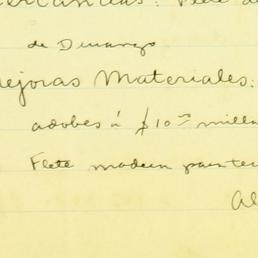 Mercancias: Flete de
de Durango
Mejoras Materiales:
adobes á $10.00 milla
Flete madera
Al